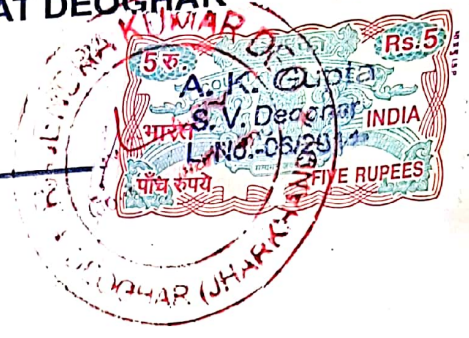 AT DEOGHAR
5 रु.
Rs.5
A. K. Gupta
S. V. Deoghar
भारत
INDIA
L. No.-06/2014
पाँच रुपये
FIVE RUPEES
KUMAR
DEOGHAR (JHARKHAND)